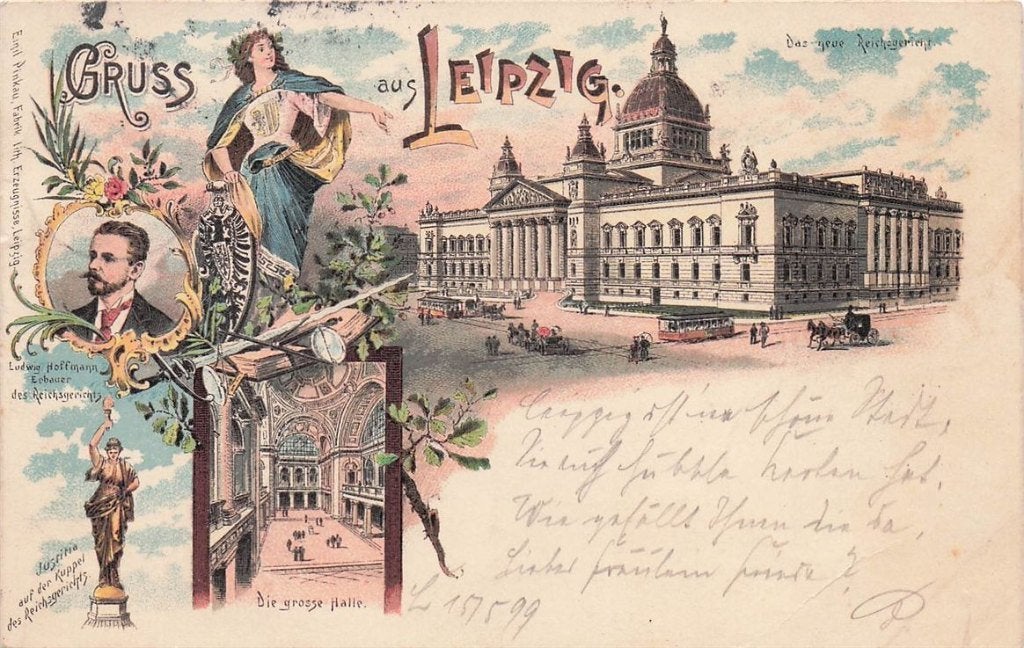 GRUSS aus LEIPZIG.
Das neue Reichsgericht.
Emil Pinkau, Fabrik lith. Erzeugnisse, Leipzig
Ludwig Hoffmann
Erbauer
des Reichsgerichts
Justitia
auf der Kuppel
des Reichsgerichts
Die grosse Halle.
Leipzig ist 'ne schöne Stadt,
Die auch hübsche hat.
Wie gefällt Ihnen die da,
Liebes Fräulein ?
L 15/5 99